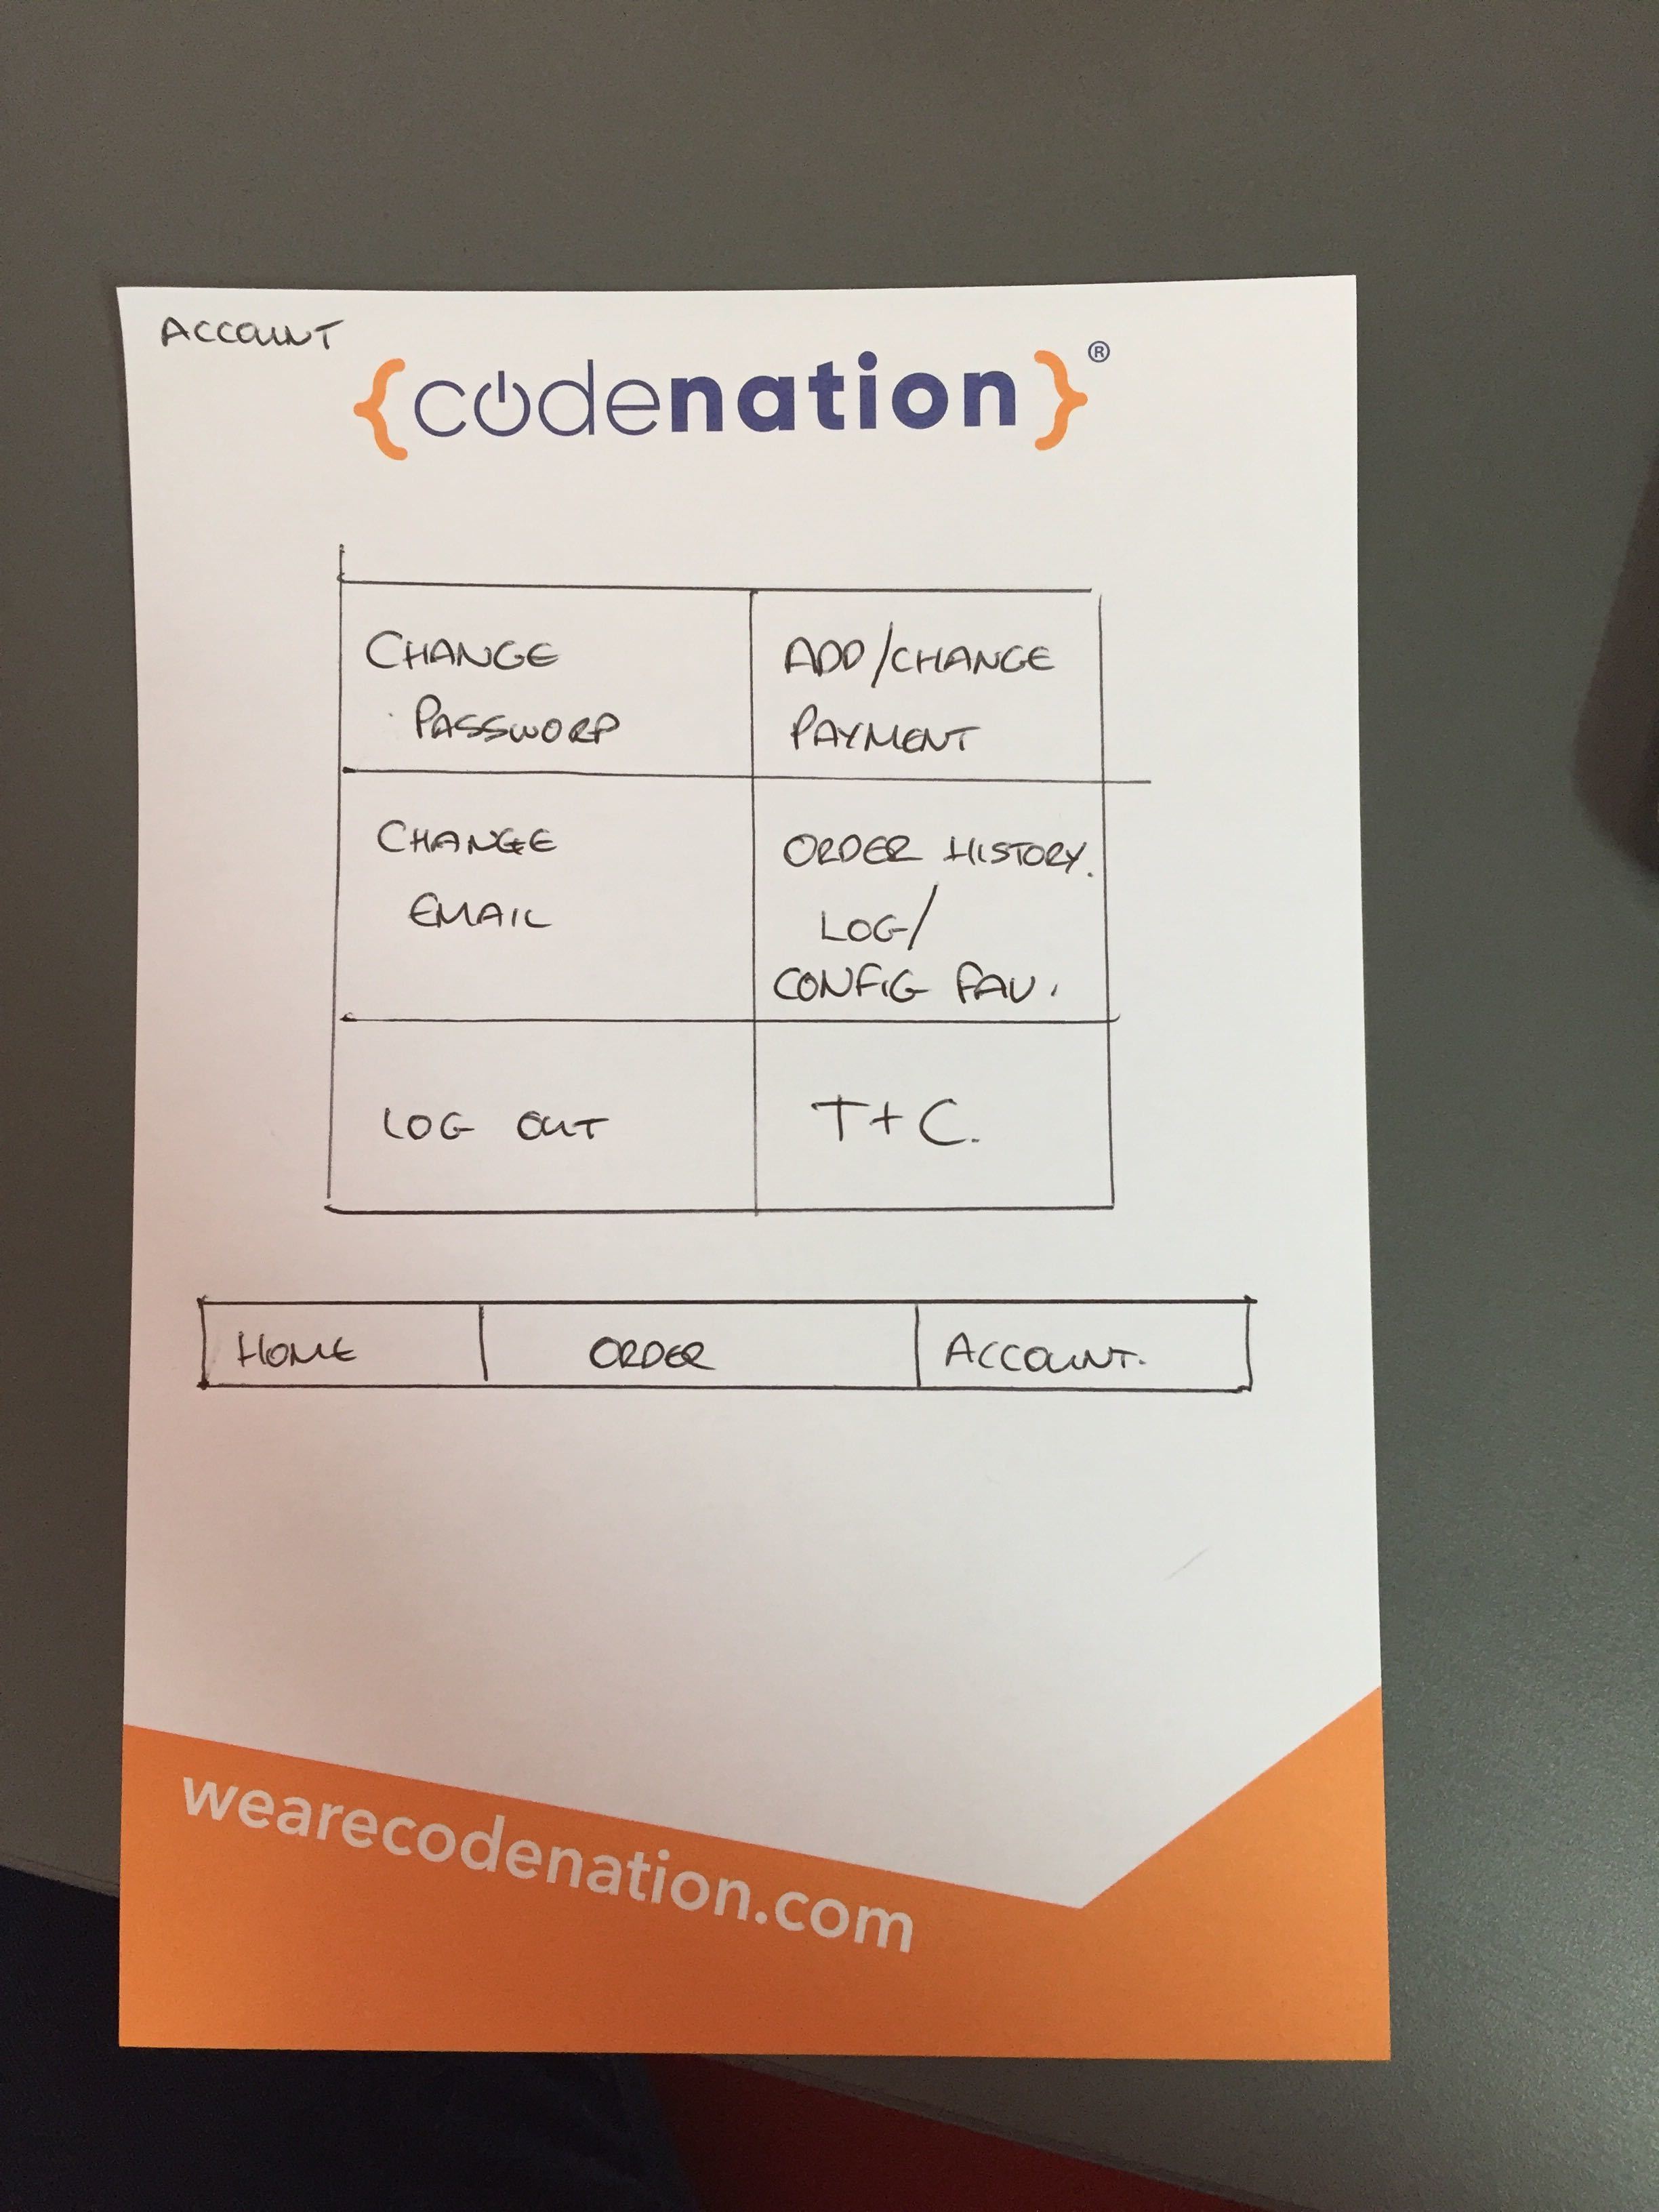 ACCOUNT
{codenation}®
CHANGE
PASSWORD
ADD/CHANGE
PAYMENT
CHANGE
EMAIL
ORDER HISTORY.
LOG/
CONFIG FAV.
LOG OUT
T+C.
HOME
ORDER
ACCOUNT.
wearecodenation.com